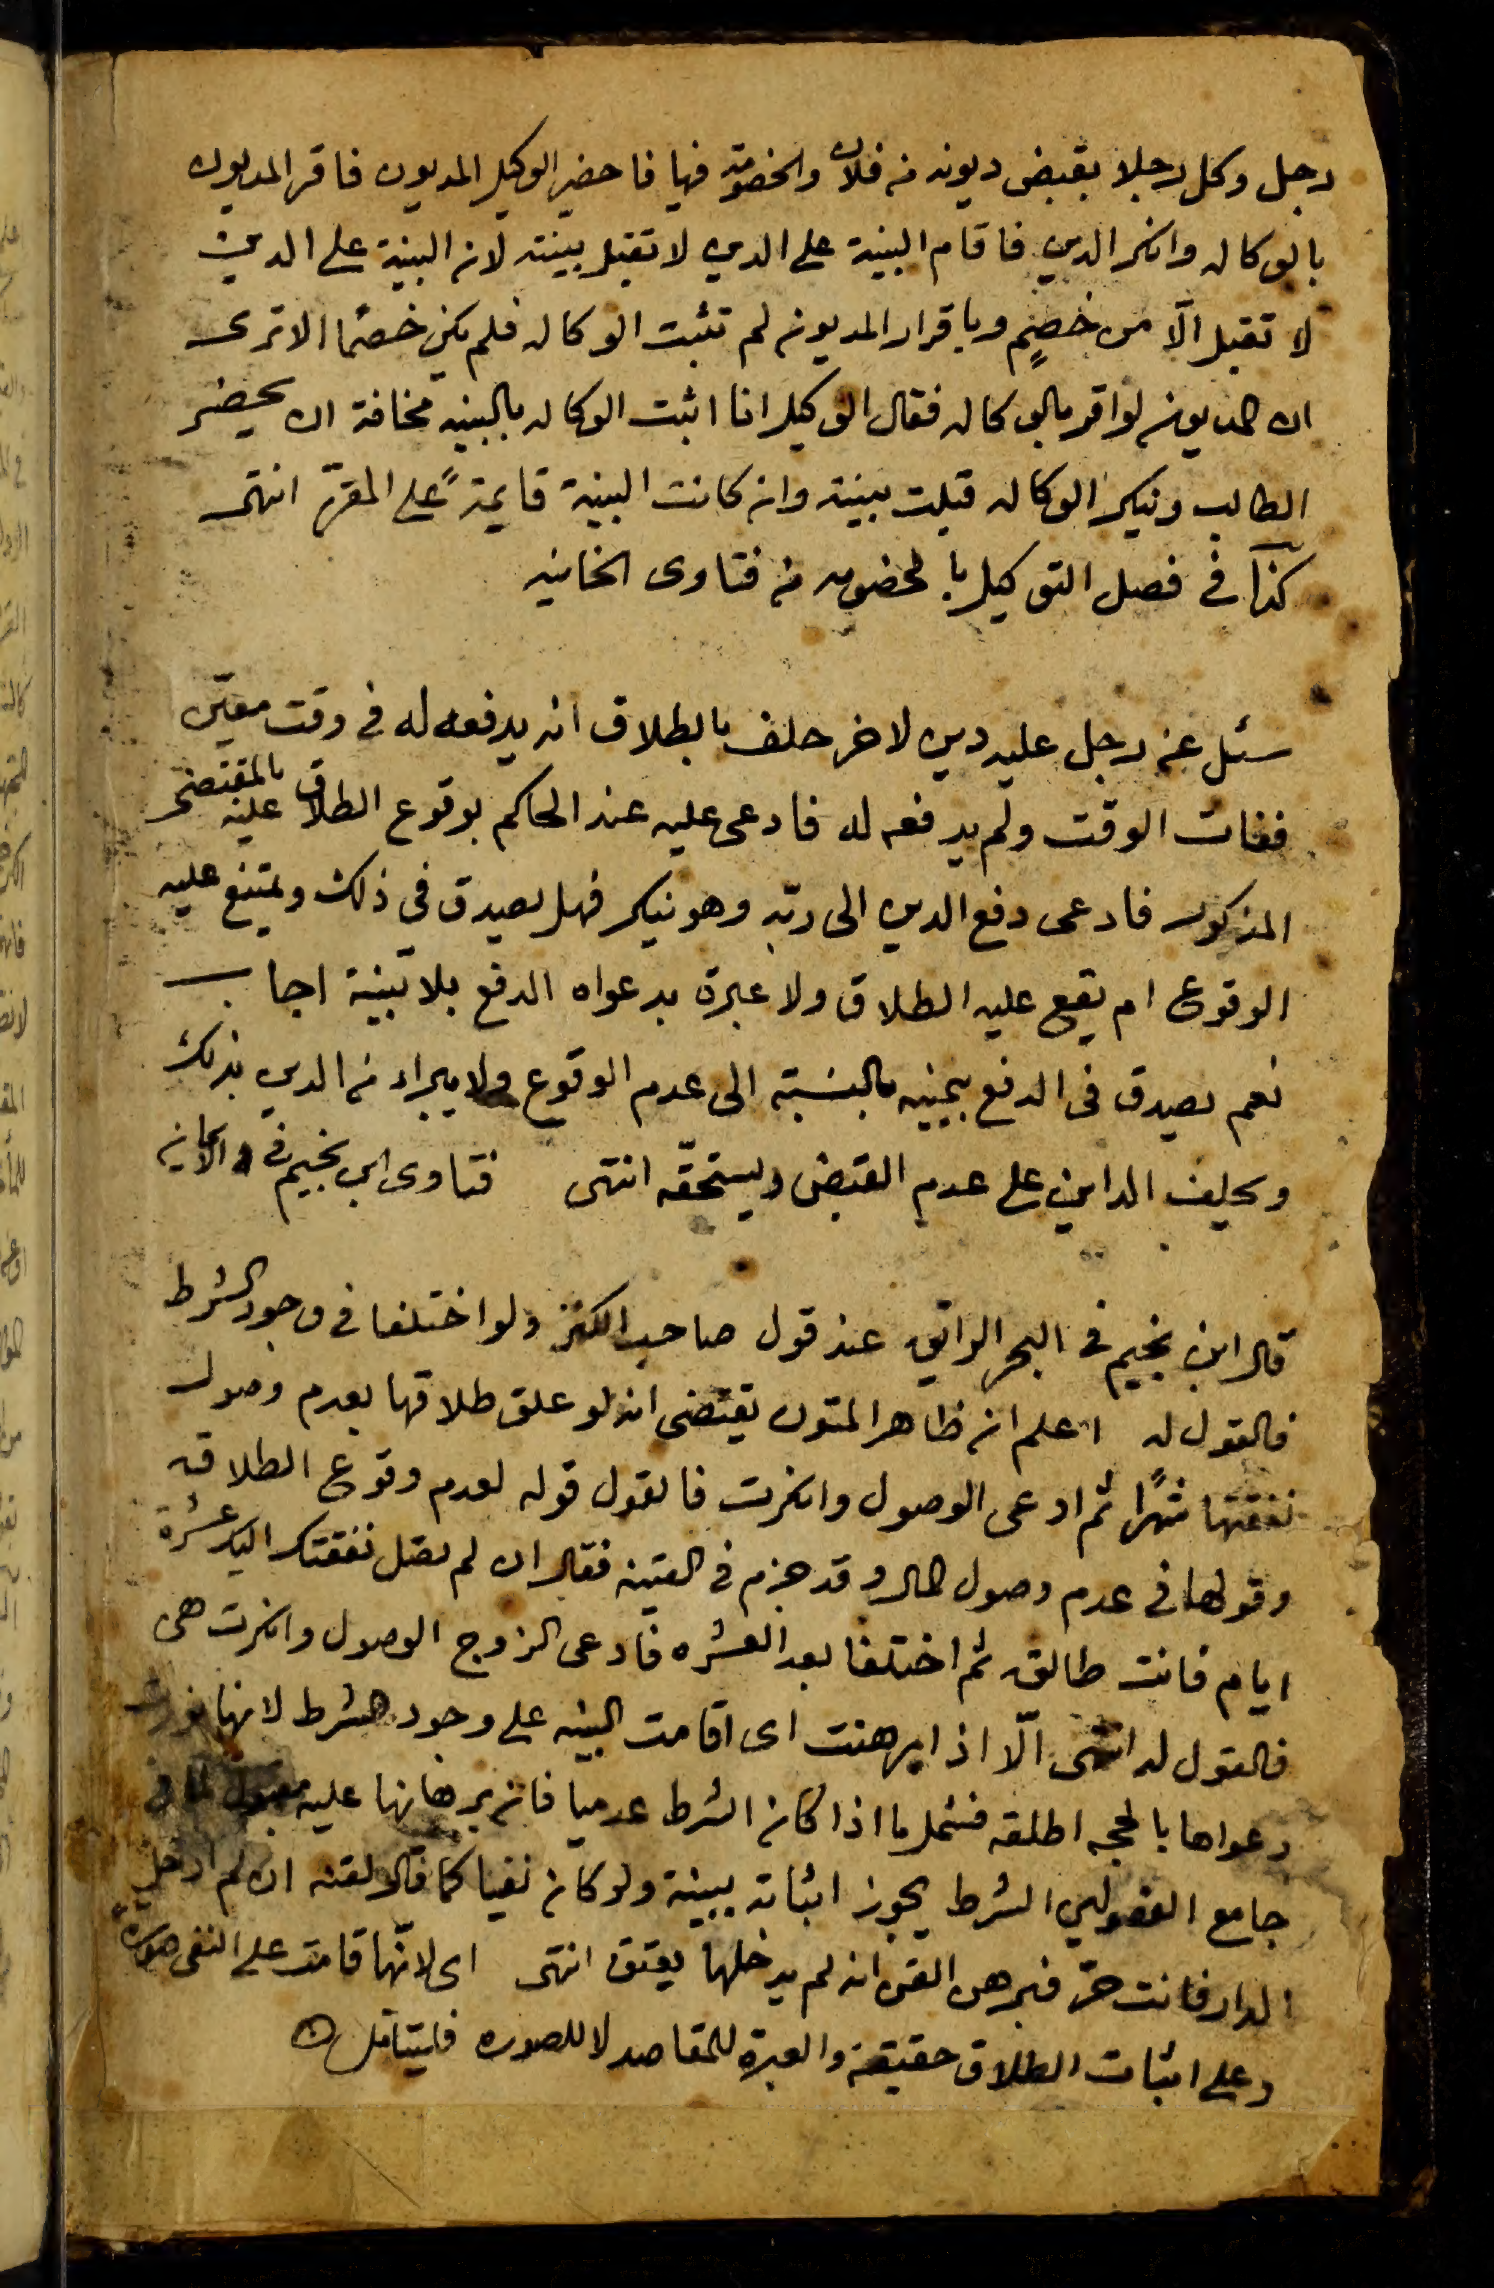 رجل وكل رجلا بقبض ديونه من فلان والخصومة فيها فاحضر الوكيل المديون فاقر المديون
بالوكاله وانكر الدين فاقام البينة على الدين لا تقبل بينته لان البينة على الدين
لا تقبل الّا من خصمٍ وباقرار المديون لم تثبت الوكاله فلم يكن خصمًا الا ترى
ان المديون لو اقر بالوكاله فقال الوكيل انا اثبت الوكاله بالبينه مخافة ان يحضر
الطالب وينكر الوكاله قبلت بينته وان كانت البينة قايمةً على المقرّ انتهى
كذا في فصل التوكيل بالخصومه من فتاوى الخانيه
سئل عن رجل عليه دين لاخر حلف بالطلاق انه يدفعه له في وقت معيّن
ففات الوقت ولم يدفعه له فادعى عليه عند الحاكم بوقوع الطلاق عليه بالمقتضى
المذكور فادعى دفع الدين الى ربّه وهو ينكر فهل يصدق في ذلك ويمتنع عليه
الوقوع ام يقع عليه الطلاق ولا عبرة بدعواه الدفع بلا بينة اجاب
نعم يصدق في الدفع بيمينه بالنسبة الى عدم الوقوع ولا يبراء من الدين بذلك
ويحلف الداين على عدم القبض ويستحقّه انتهى فتاوى ابن نجيم في الايمان
قال ابن نجيم في البحر الرائق عند قول صاحب الكنز ولو اختلفا في وجود الشرط
فالقول له اعلم ان ظاهر المتون يقتضى انه لو علق طلاقها بعدم وصول
نفقتها شهرًا ثم ادعى الوصول وانكرت فالقول قوله لعدم وقوع الطلاق
وقولها في عدم وصول المال وقد جزم في القنيه فقال ان لم تصل نفقتك اليك عشرة
ايام فانت طالق ثم اختلفا بعد العشره فادعى الزوج الوصول وانكرت هى
فالقول له انتهى الّا اذا برهنت اى اقامت البينه على وجود الشرط لانها نورت
دعواها بالحجه اطلقه فشمل ما اذا كان الشرط عدميا فان برهانها عليه مقبول لما في
جامع الفصولين الشرط يجوز اثباته ببينة ولو كان نفيا كما قال لقنه ان لم ادخل
الدار فانت حرّ فبرهن القن انه لم يدخلها يعتق انتهى اى لانّها قامت على النفى صورةً
وعلى اثبات الطلاق حقيقة والعبرة للمقاصد لا للصوره فليتامّل